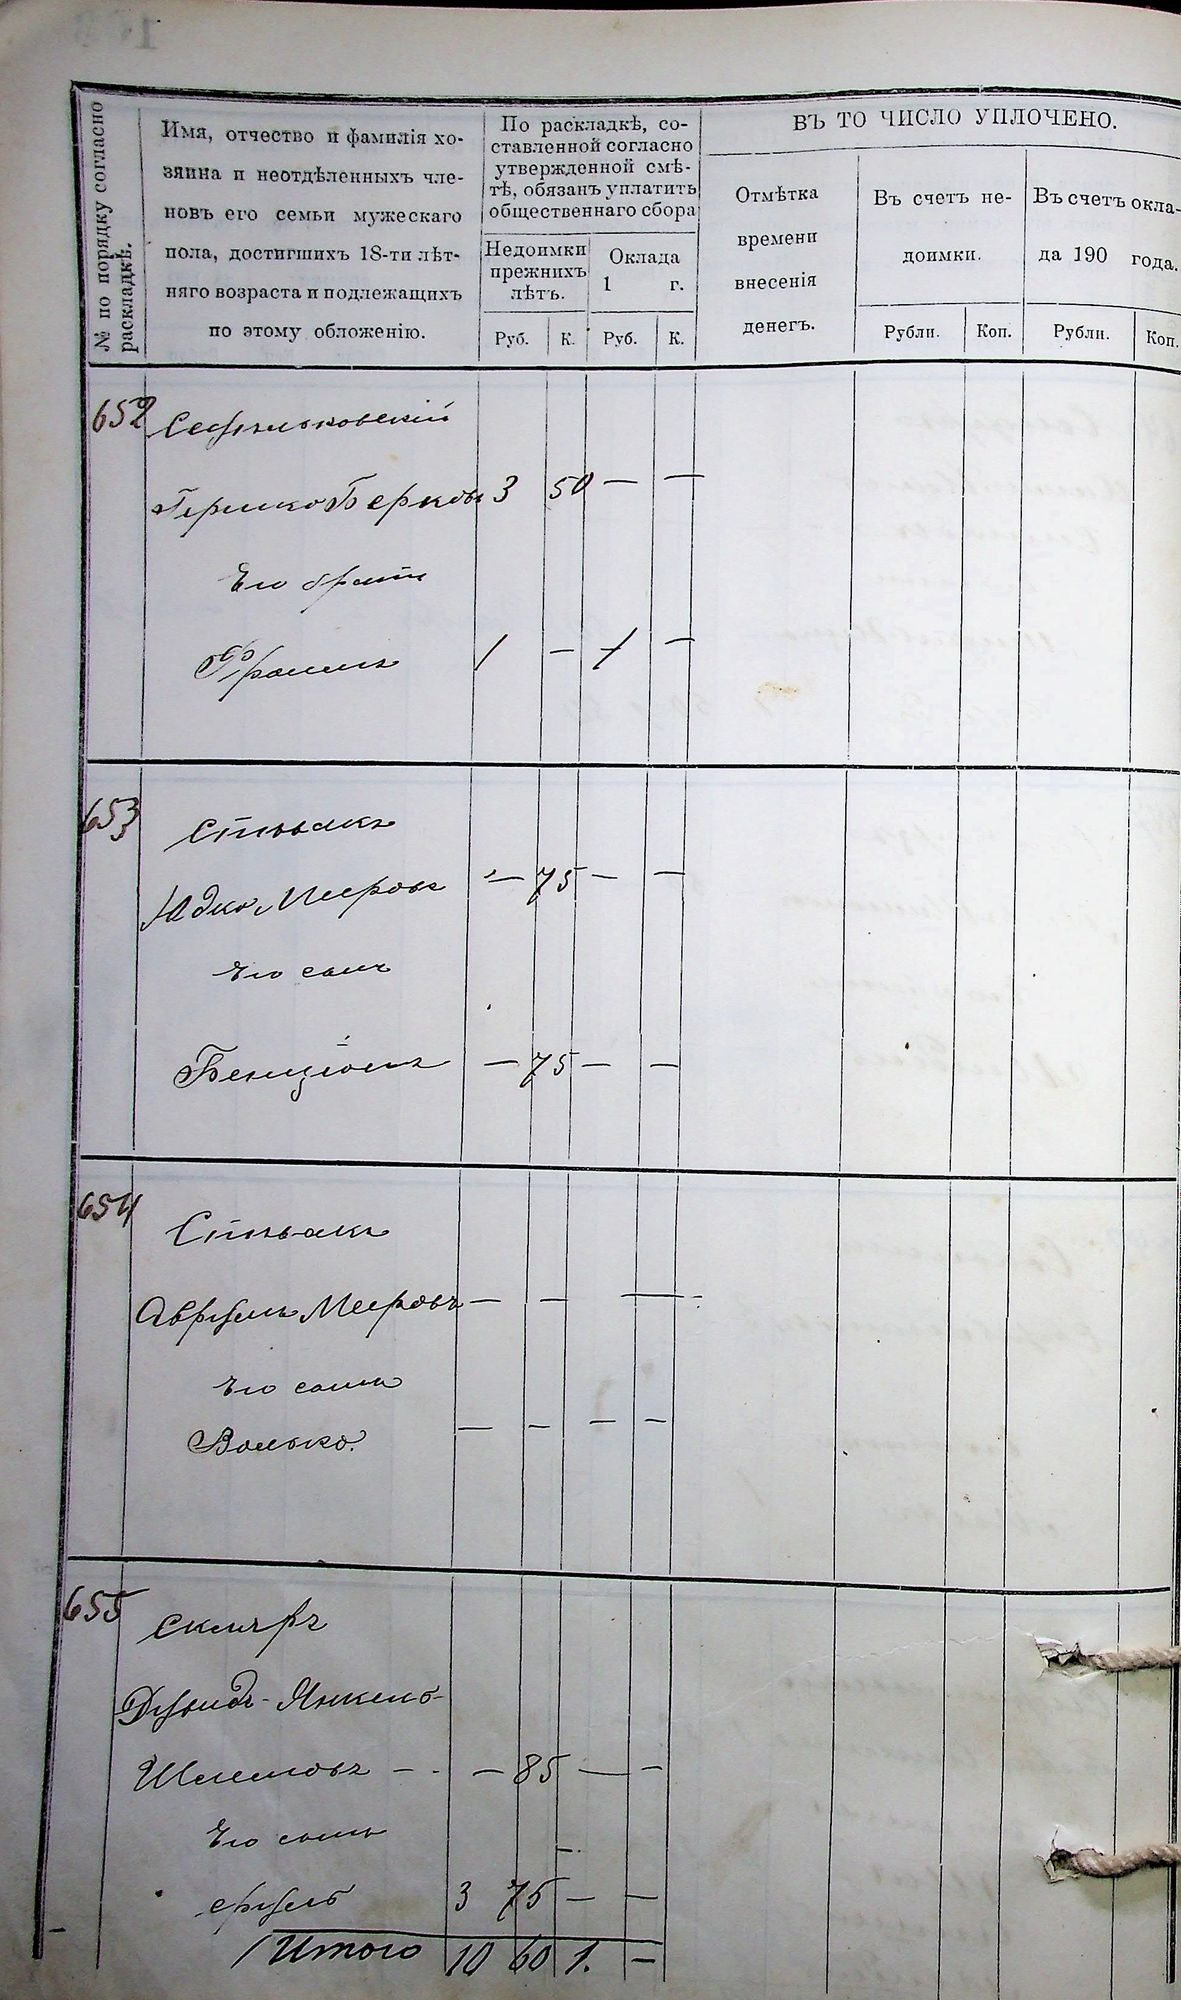 № по порядку согласно
раскладкѣ.
Имя, отчество и фамилія хо-
зяина и неотдѣленныхъ чле-
новъ его семьи мужескаго
пола, достигшихъ 18-ти лѣт-
няго возраста и подлежащихъ
по этому обложенію.
По раскладкѣ, со-
ставленной согласно
утвержденной смѣ-
тѣ, обязанъ уплатить
общественнаго сбора
Недоимки
прежнихъ
лѣтъ.
Оклада
1 г.
Руб. К. Руб. К.
ВЪ ТО ЧИСЛО УПЛОЧЕНО.
Отмѣтка
времени
внесенія
денегъ.
Въ счетъ не-
доимки.
Рубли. Коп.
Въ счетъ окла-
да 190 года.
Рубли. Коп.
652
Гершко Берковъ 3 50 — —
Его братъ
Фроимъ 1 — 1 —
653 Спивакъ
Юдко Мееровъ — 75 — —
Его сынъ
Бенціонъ — 75 — —
654 Спивакъ
Аврумъ Мееровъ — — —
Его сынъ
Волько. — — — —
655 Скляръ
Дувидъ-Янкель-
Шлемовъ — — 85 — —
Его сынъ
Сруль 3 75 — —
Итого 10 60 1. —